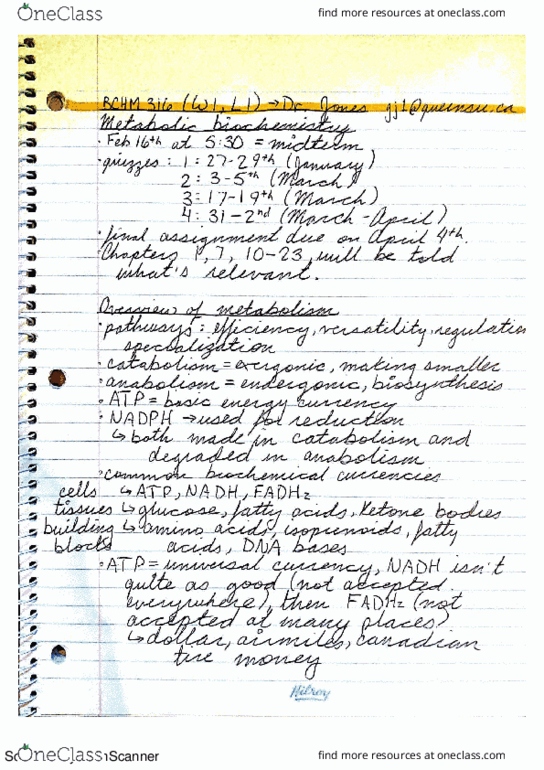 OneClass
find more resources at oneclass.com
BCHM 316 (W1, L1) → Dr. Jones gj1@queensu.ca
Metabolic biochemistry
· Feb 16th at 5:30 = midterm
· quizzes : 1 : 27-29th (January)
2 : 3-5th (March)
3 : 17-19th (March)
4 : 31-2nd (March-April)
· final assignment due on April 4th.
· Chapters 1, 7, 10-23, will be told
what's relevant.
Overview of metabolism
· pathways : efficiency, versatility, regulation
specialization
· catabolism = exergonic, making smaller
· anabolism = endergonic, biosynthesis
· ATP = basic energy currency
· NADPH → used for reduction
↳ both made in catabolism and
degraded in anabolism
· common biochemical currencies
cells ↳ ATP, NADH, FADH2
tissues ↳ glucose, fatty acids, Ketone bodies
building ↳ amino acids, isoprenoids, fatty
blocks acids, DNA bases
· ATP = universal currency, NADH isn't
quite as good (not accepted
everywhere), then FADH2 (not
accepted at many places)
↳ dollar, airmiles, canadian
tire money
Hilroy
OneClass
Scanner
find more resources at oneclass.com